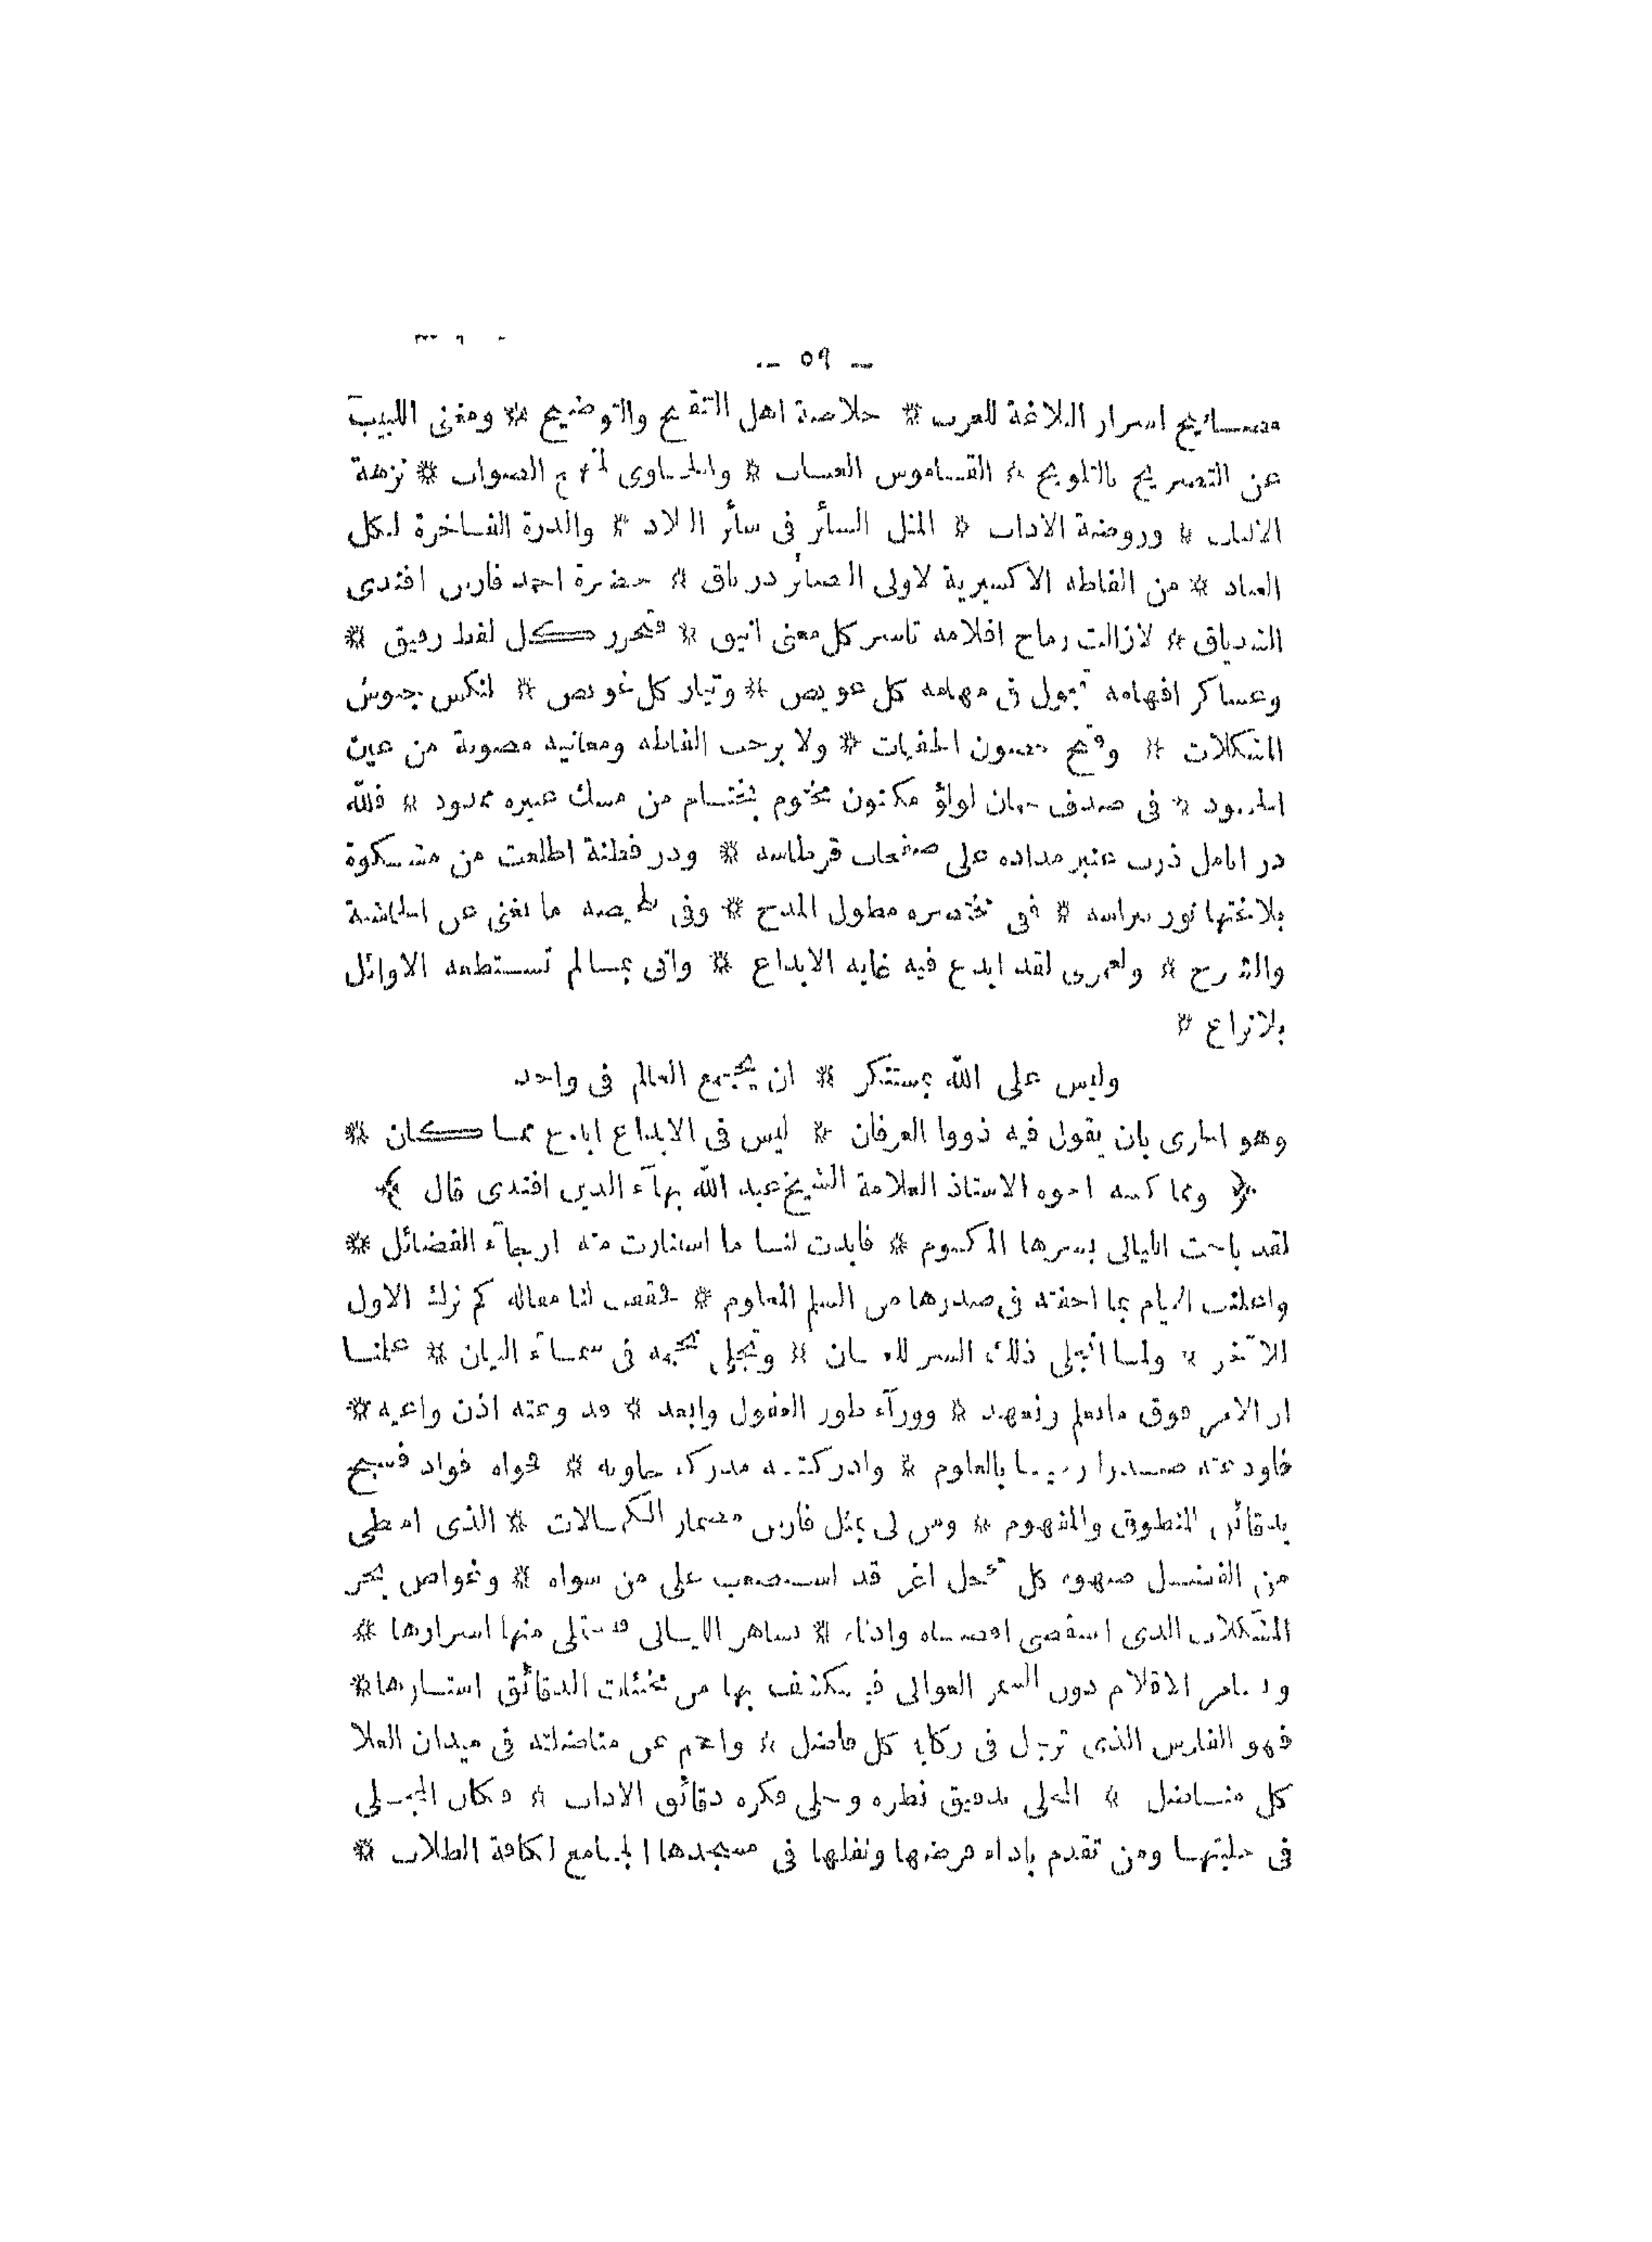 – ٥٩ –
اسرار البلاغة للعرب * خلاصة اهل التنقيح والتوضيح * ومغنى اللبيب
عن التصريح بالتلويح * القاموس العباب * والحاوى الصواب * نزهة
الالباب * وروضة الاداب * المثل السائر فى سائر البلاد * والدرة الفاخرة لكل
العباد * من الفاظه الاكسيرية لاولى البصائر درياق * حضرة احمد فارس افندى
الشدياق * لازالت رماح اقلامه تاسر كل معنى انيق * وتحرر كل لفظ رقيق *
وعساكر افهامه تجول فى مهامه كل عويص * وتيار كل غويص * لتنكس جيوش
المشكلات * وفتح حصون الخفيات * ولا برحت الفاظه ومعانيه مصونة من عين
الحسود * فى صدف جمان لولؤ مكنون مختوم بختام من مسك عبيره ممدود * فلله
در انامل ذرت عنبر مداده على صفحات قرطاسه * ودر فطنة اطلعت من مشكوة
بلاغتها نور نبراسه * ففى مختصره مطول المدح * وفى تلخيصه ما يغنى عن الحاشية
والشرح * ولعمرى لقد ابدع فيه غاية الابداع * واتى بما لم تستطعه الاوائل
بلانزاع *
وليس على الله بمستنكر * ان يجمع العالم فى واحد
وهو الحرى بان يقول فيه ذووا العرفان * ليس فى الابداع ابدع مما كان *
﴿ ومما كتبه اخوه الاستاذ العلامة الشيخ عبد الله بهآء الدين افندى قال ﴾
لقد باحت الليالى بسرها المكتوم * فابدت لنا ما استنارت منه ارجآء الفضائل *
واعلنت الايام بما اخفته فى صدرها من السر المعلوم * فحققت لنا مقالة كم ترك الاول
للآخر * ولما انجلى ذلك السر للعيان * وتجلى نجمه فى سمآء البيان * علمنا
ان الامر فوق مانعلم ونعهد * وورآء طور العقول وابعد * قد وعته اذن واعيه *
فاودعته صدرا رحيبا بالعلوم * وادركته مدركة سماويه * فحواه فواد فسيح
بدقائق المنطوق والمفهوم * ومن لى بمثل فارس مضمار الكمالات * الذى امتطى
من الفضل صهوة كل فحل اغر قد استصعب على من سواه * وغواص بحر
المشكلات الذى استقصى اقصاه وادناه * يساهر الليالى فيستجلى منها اسرارها *
ويسامر الاقلام دون السمر العوالى فيستكشف بها من مخبئات الدقائق استارها *
فهو الفارس الذى ترجل فى ركابه كل فاضل * واحجم عن مناضلته فى ميدان العلا
كل مناضل * المحلى بدقيق نظره وجلى فكره دقائق الاداب * فكان المجلى
فى حلبتها ومن تقدم باداء فرضها ونفلها فى مسجدها الجامع لكافة الطلاب *